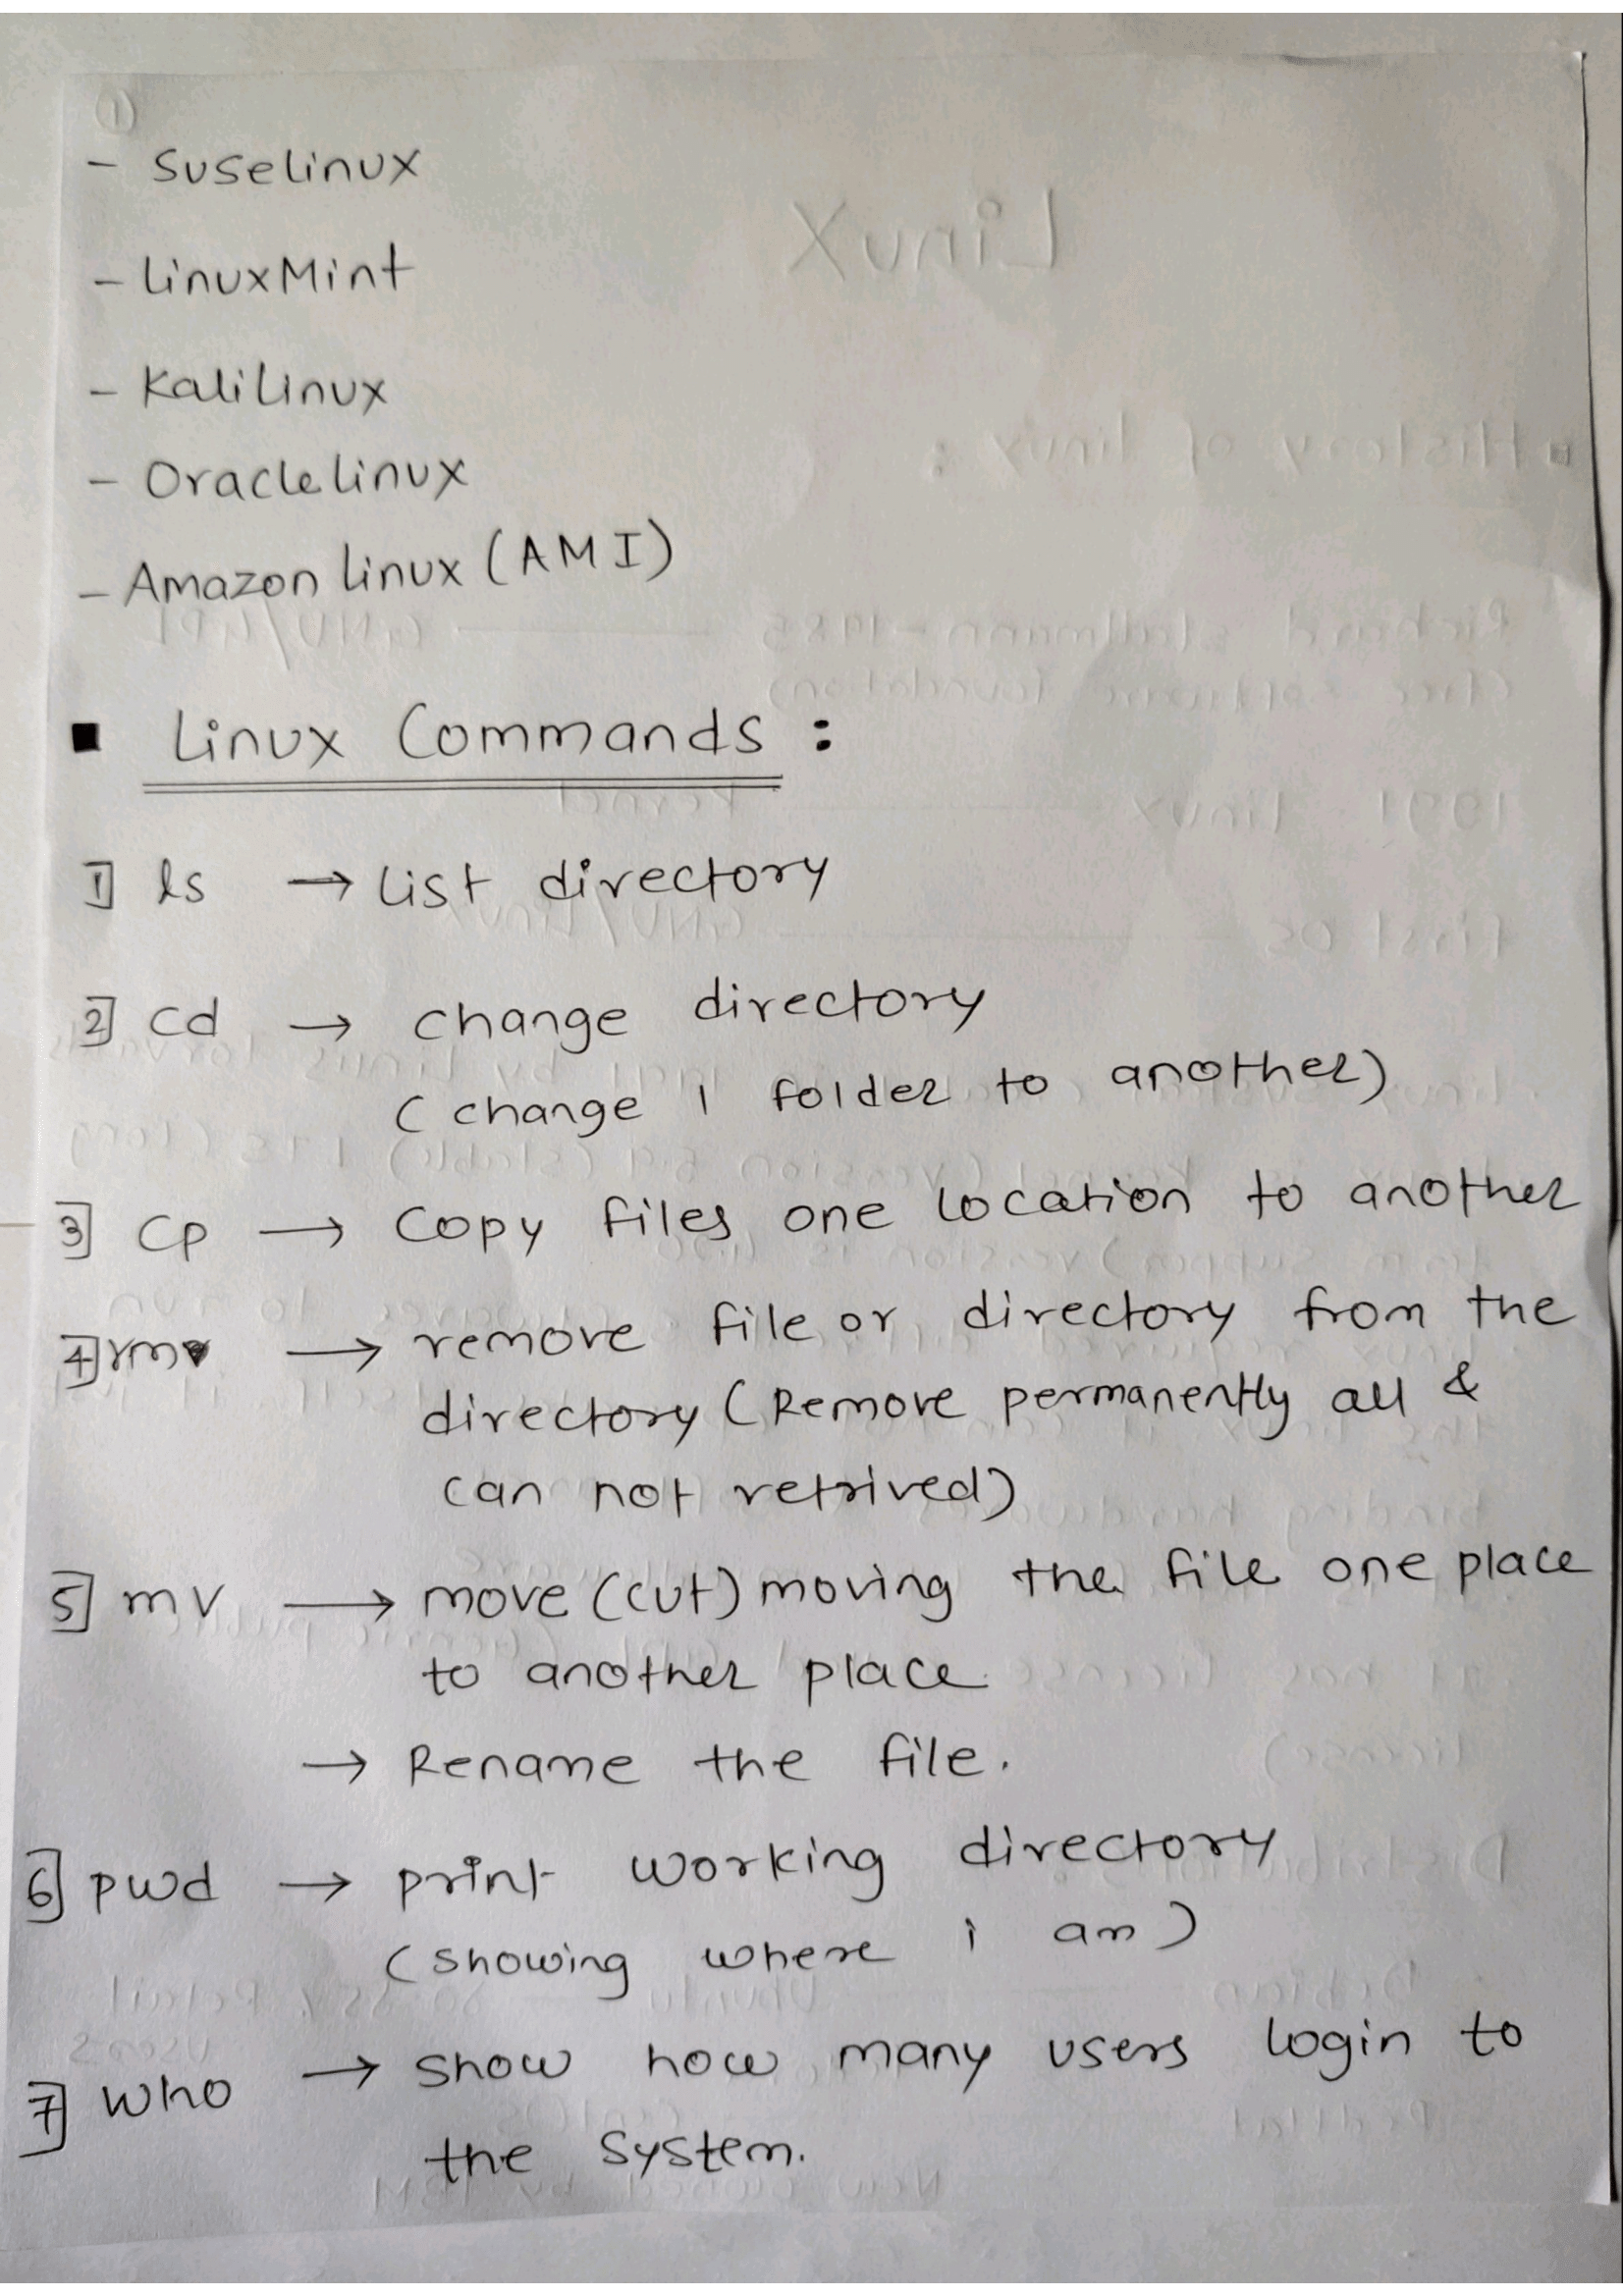 - Suselinux
- LinuxMint
- Kalilinux
- Oraclelinux
- Amazon linux (AMI)
■ Linux Commands :
1] ls → List directory
2] cd → change directory
(change 1 folder to another)
3] cp → copy files one location to another
4] rm → remove file or directory from the
directory (Remove permanently all &
can not retrived)
5] mv → move (cut) moving the file one place
to another place
→ Rename the file.
6] pwd → print working directory
(showing where i am)
7] who → show how many users login to
the system.